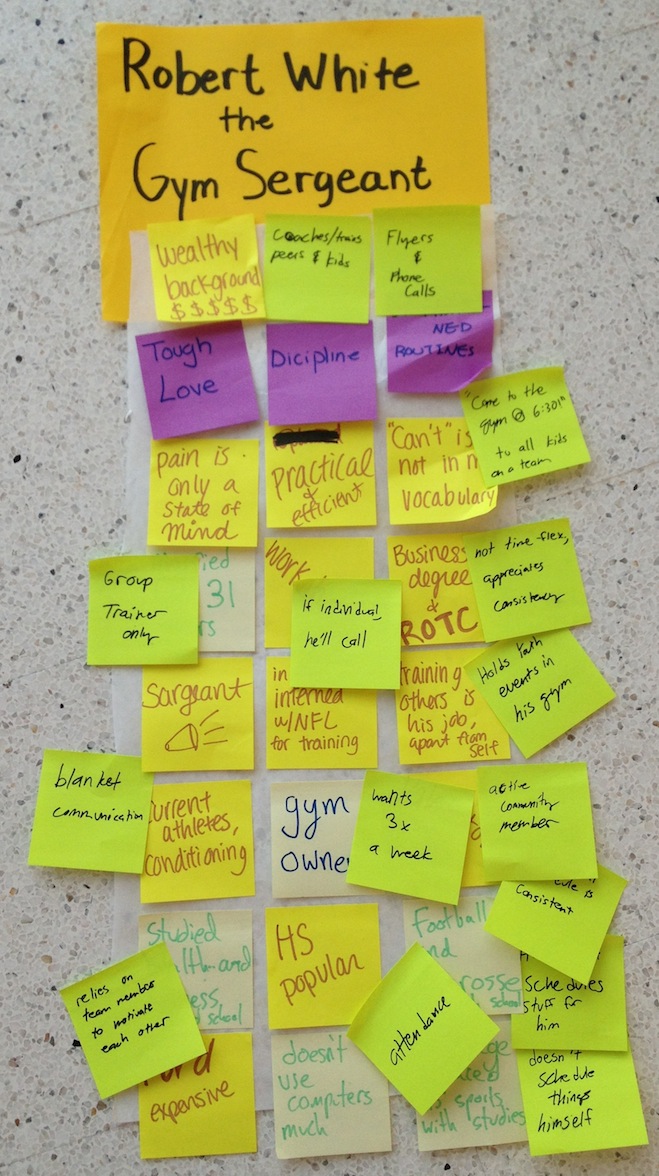 Robert White
the
Gym Sergeant
Wealthy
background
$$$$$
Coaches/trains
peers & kids
Flyers
&
Phone
Calls
Tough
Love
Dicipline
NED
ROUTINES
"Come to the
gym @ 6:30!"
to all kids
on a team
pain is
only a
state of
Mind
practical
&
efficient
"Can't" is
not in
vocabulary
31
Group
Trainer
only
work
if individual,
he'll call
Business
degree
&
ROTC
not time-flex,
appreciates
consistency
Sargeant
in
interned
w/NFL
for training
training
others is
his job,
apart from
self
Holds Youth
events in
his gym
blanket
communication
current
athletes,
conditioning
gym
owner
wants
3x
a week
active
community
member
is
consistent
Studied
and
school
relies on
team member
to motivate
each other
HS
popular
Football
school
attendance
schedules
stuff for
him
expensive
doesn't
use
computers
much
sports
with studies
doesn't
schedule
things
himself